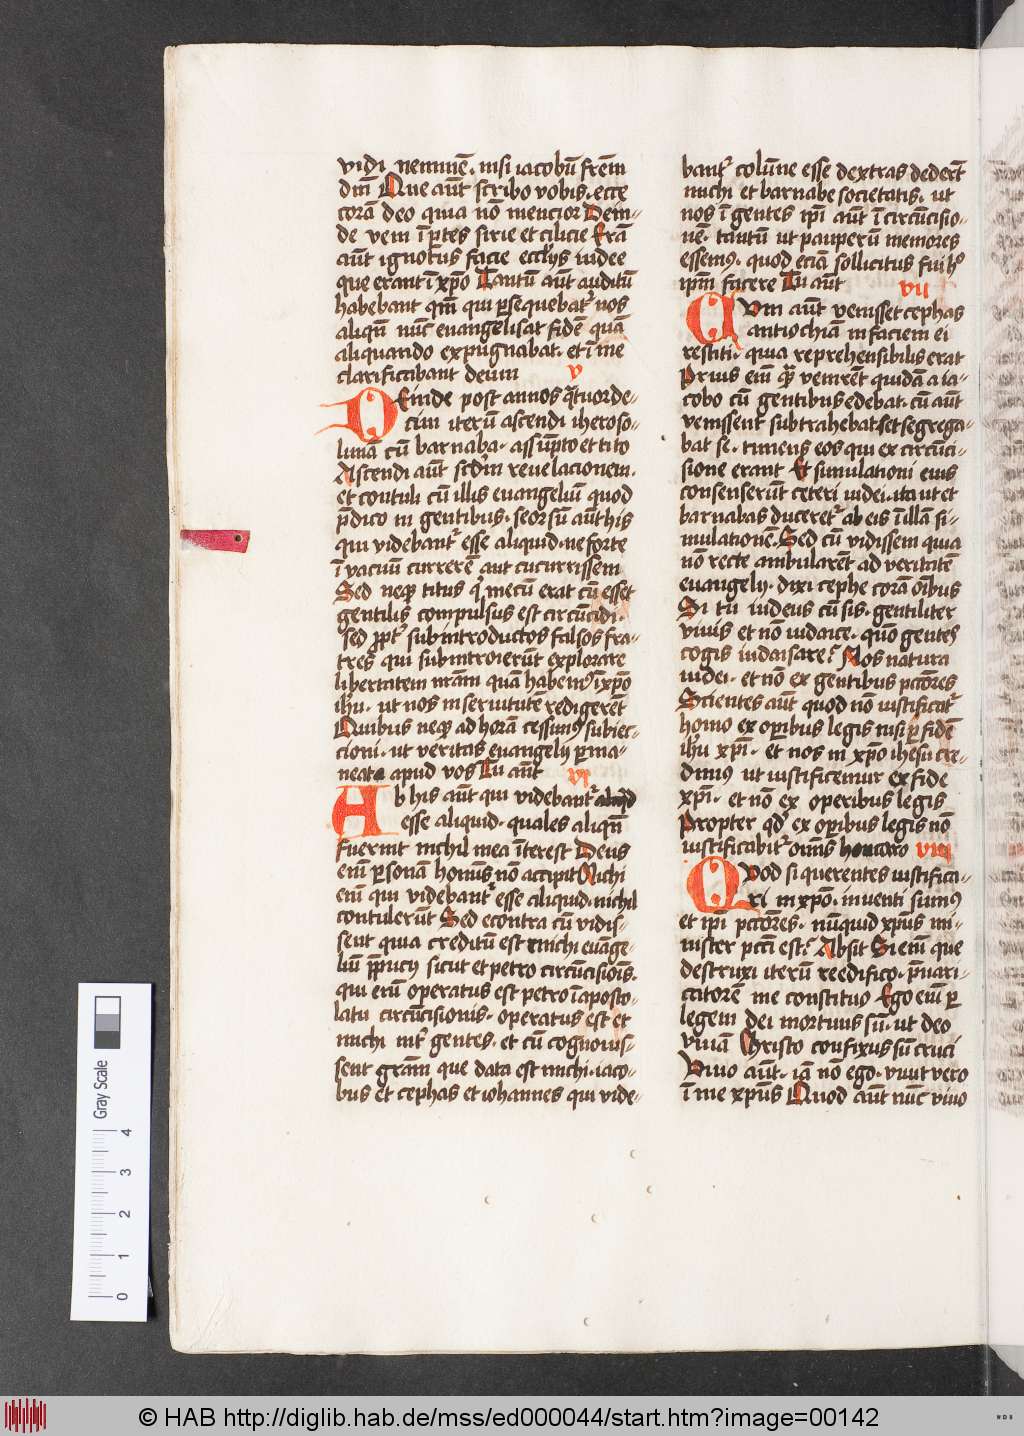 vidi neminē. nisi iacobū fr̄em
dn̄i Que aūt scribo vobis. ecce
corā deo quia nō mencior Dein-
de veni ī ꝑtes sirie et cilicie Erā
aūt ignotus facie eccl̄ijs iudee
que erant ī xp̄o Tantū aūt auditū
habebant qm̄ qui ꝑsequebat᷑ nos
aliqn̄ nūc euangelisat fidē quā
aliquando expugnabat. et ī me
clarificabant deum v
DEinde post annos qͣtuorde-
cim iterū ascendi iheroso-
limā cū barnaba. assūpto et tito
Ascendi aūt scdm̄ reuelacionem.
et contuli cū illis euangeliū quod
p̄dico in gentibus. seorsū aūt his
qui videbant᷑ esse aliquid. ne forte
ī vacuū currerē aut cucurrissem
Sed neqꝫ titus qͥ mecū erat cū esset
gentilis compulsus est circūcidi.
sed ꝓpt᷑ subintroductos falsos fra-
tres qui subintroierūt explorare
libertatem nr̄am quā habemꝰ ī xp̄o
ih̄u. ut nos in seruitutē redigerēt
Quibus neqꝫ ad horā cessimꝰ subiec-
cioni. ut veritas euangelij ꝑma-
neat apud vos Tu aūt vi
AB his aūt qui videbant᷑
esse aliquid. quales aliqn̄
fuerint nichil mea īterest Deus
eni ̄ ꝑsonā hominis nō accipit Michi
enī qui videbant᷑ esse aliquid. nichil
contulerūt Sed econtra cū vidis-
sent quia creditū est michi euāge-
liū p̄pucij sicut et petro circūcisiōis.
qui enī operatus est petro ī aposto-
latū circūcisionis. operatus est et
michi int᷑ gentes. et cū cognouis-
sent grām que data est michi. iaco-
bus et cephas et iohannes qui vide-
bant᷑ colūne esse dextras dederūt
michi et barnabe societatis. ut
nos ī gentes ip̄i aūt ī circūcisio-
nē. tantū ut pauperū memores
essemꝰ. quod eciā sollicitus fui hͦ
ip̄m facere Tu aūt vii
CVm aūt venisset cephas
antiochiā in faciem ei
restiti. quia reprehensibilis erat
Prius enī qͣ veni rēt quidā a ia-
cobo cū gentibus edebat. cū aūt
venissent subtrahebat se et segrega-
bat se. timens eos qui ex circūci-
sione erant Et simulationi eius
consenserūt ceteri iudei. ita ut et
barnabas duceret᷑ ab eis ī illā si-
mulationē. Sed cū vidissem quia
nō recte ambularēt ad veritatē
euangelij. dixi cephe corā oībus
Si tu iudeus cū sis. gentiliter
viuis et nō iudaice. quō gentes
cogis iudaisare? Nos natura
iudei. et nō ex gentibus pctōres
Scientes aūt quod nō iustificat᷑
homo ex oꝑibus legis nisi ꝑ fidē
ih̄u xp̄i. et nos in xp̄o ihesu cre-
dimꝰ ut iustificemur ex fide
xp̄i. et nō ex operibus legis
Propter qd̓ ex oꝑibus legis nō
iustificabit᷑ omīs caro viii
QVod si querentes iustifica-
ri in xp̄o. inuenti sumus
et ip̄i pctōres. nūquid xp̄us mi-
nister pctī est? Absit Si enī que
destruxi iterū reedifico. p̄uari-
catorē me constituo Ego enī ꝑ
legem dei mortuus sū. ut deo
viuā Christo confixus sū cruci
Viuo aūt. iā nō ego. viuit vero
ī me xp̄us Quod aūt nūc viuo
Gray Scale
4
3
2
1
0
© HAB http://diglib.hab.de/mss/ed000044/start.htm?image=00142